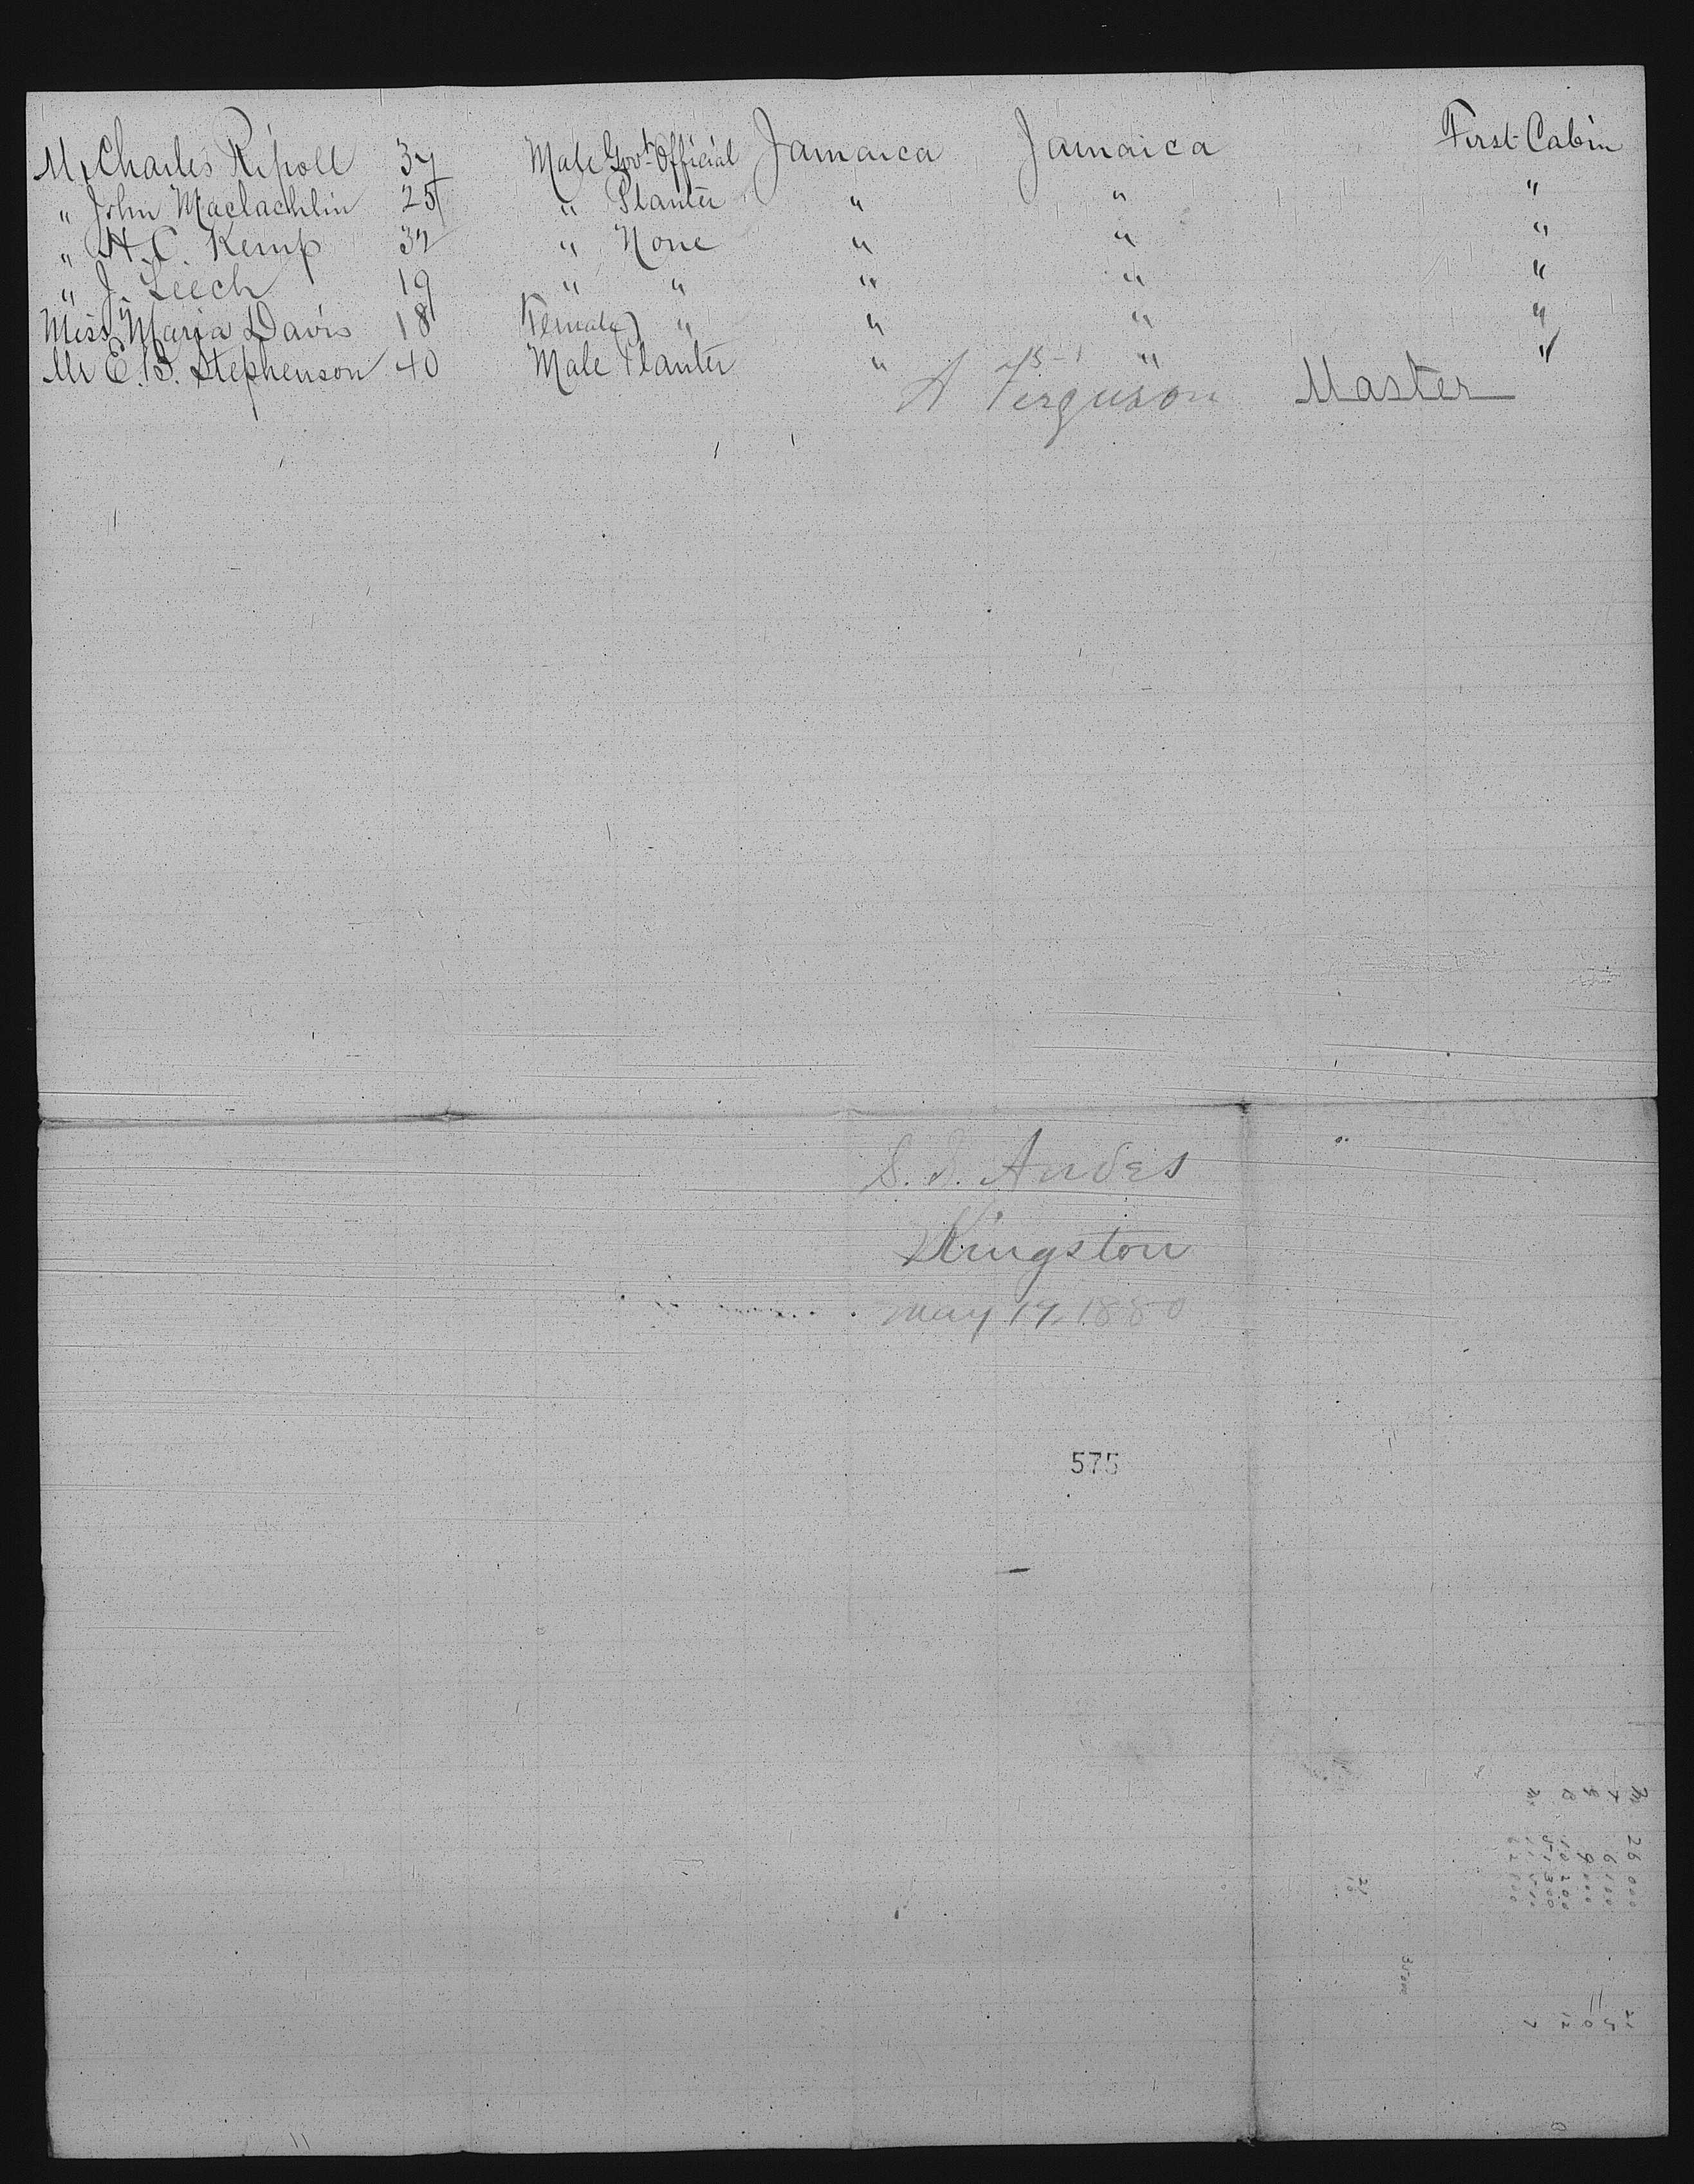 Mr Charles Ripoll 37 Male Govt Official Jamaica Jamaica First Cabin
" John Maclachlin 25 " Planter " " "
" H. C. Kemp 32 " None " " "
" J. Leech 19 " " " " "
Miss Maria Davis 18 Female " " " "
Mr E. B. Stephenson 40 Male Planter " " "
A Ferguson Master
S. S. Andes
Kingston
May 19, 1880
575